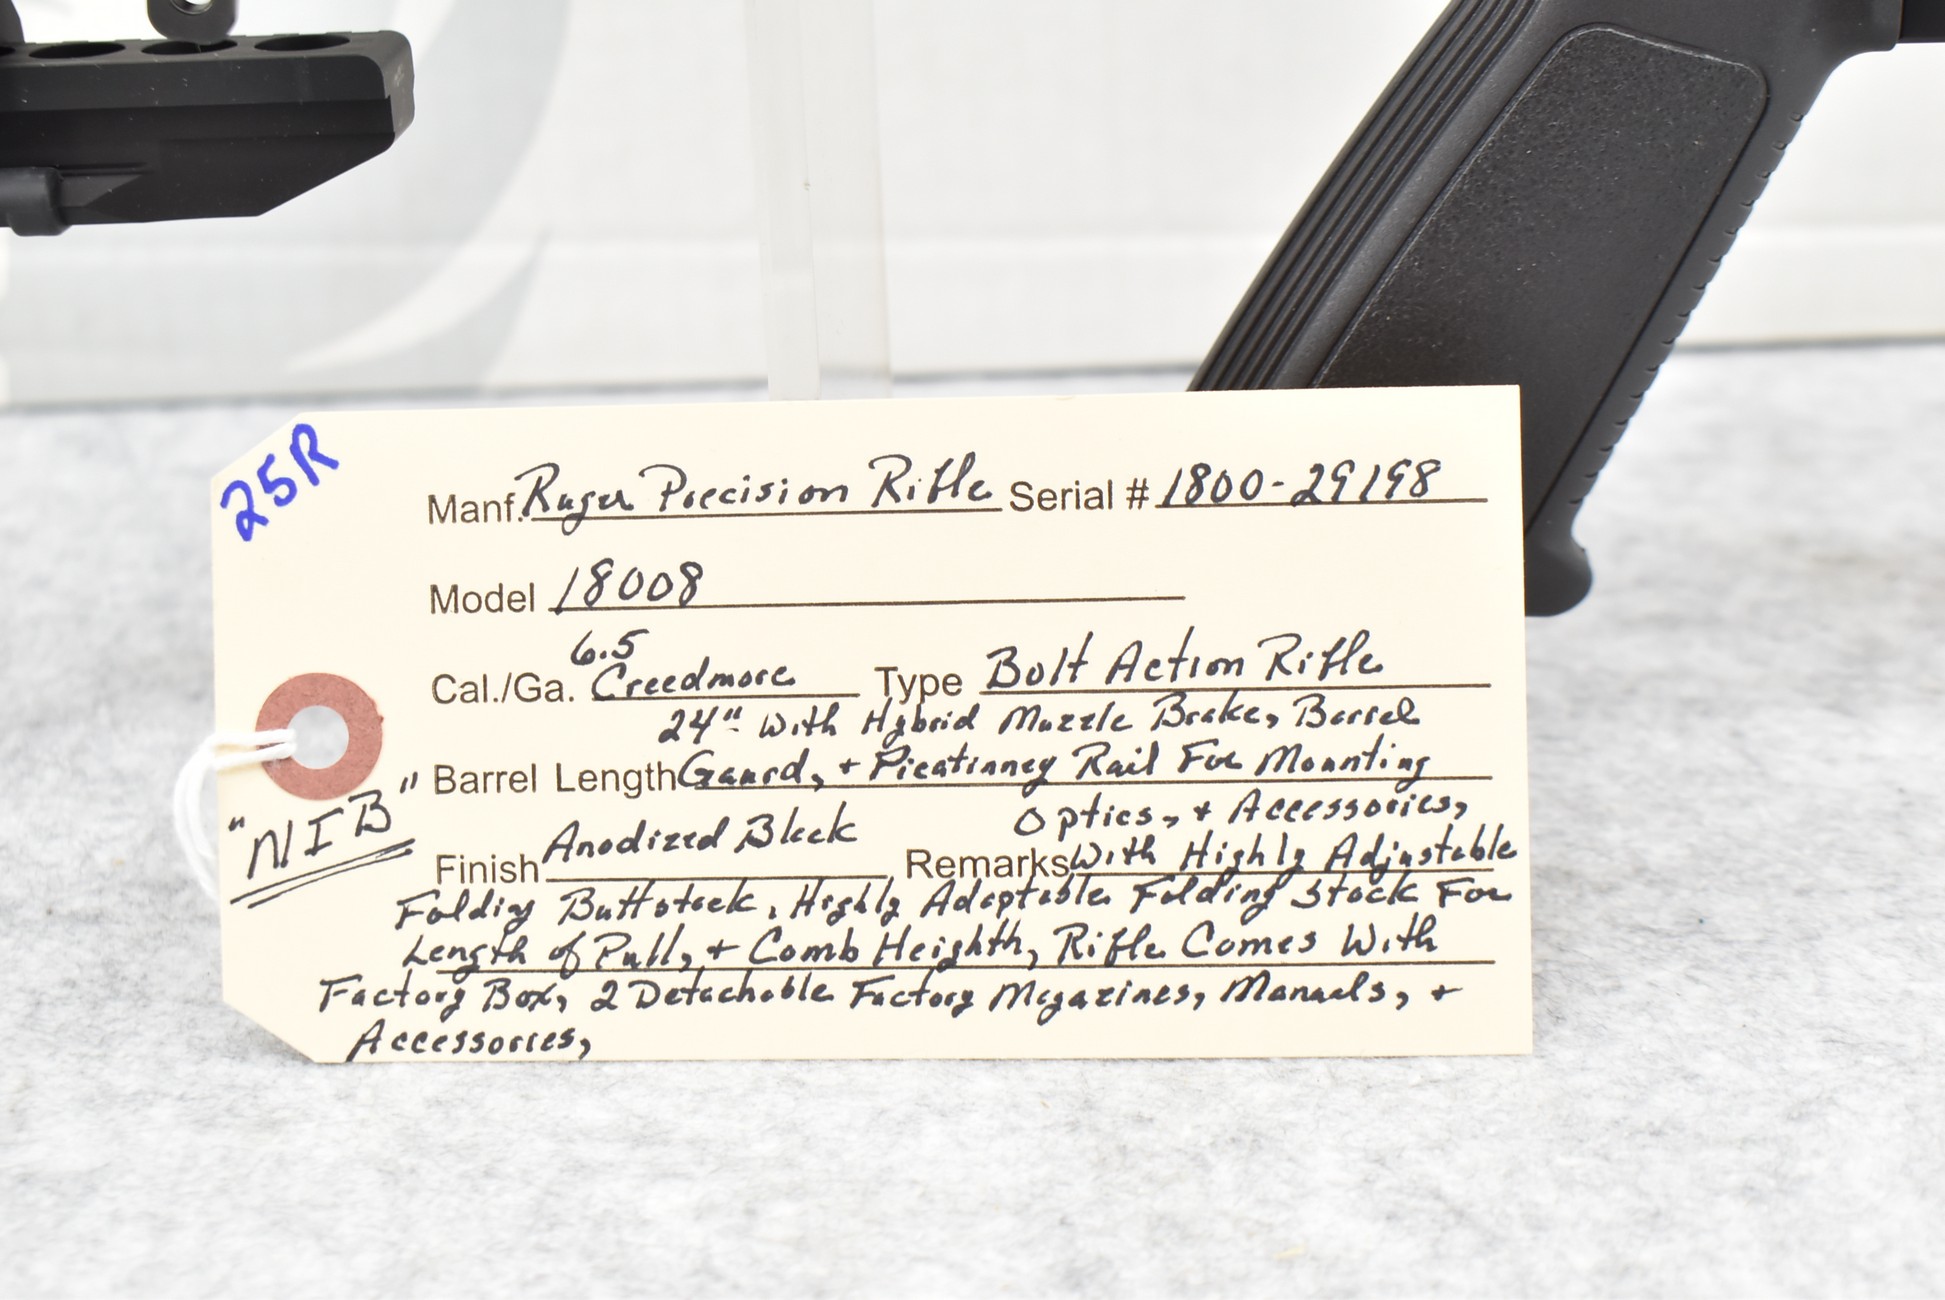 25R
Manf. Ruger Precision Rifle Serial # 1800-29198
Model 18008
6.5
Cal./Ga. Creedmore Type Bolt Action Rifle
24" With Hybrid Muzzle Brake, Barrel
Barrel Length Gaurd, + Picatinney Rail For Mounting
Optics, + Accessories,
"NIB"
Finish Anodized Black Remarks With Highly Adjustable
Folding Buttstock, Highly Adaptable Folding Stock For
Length of Pull, + Comb Heighth, Rifle Comes With
Factory Box, 2 Detachable Factory Magazines, Manuals, +
Accessories,